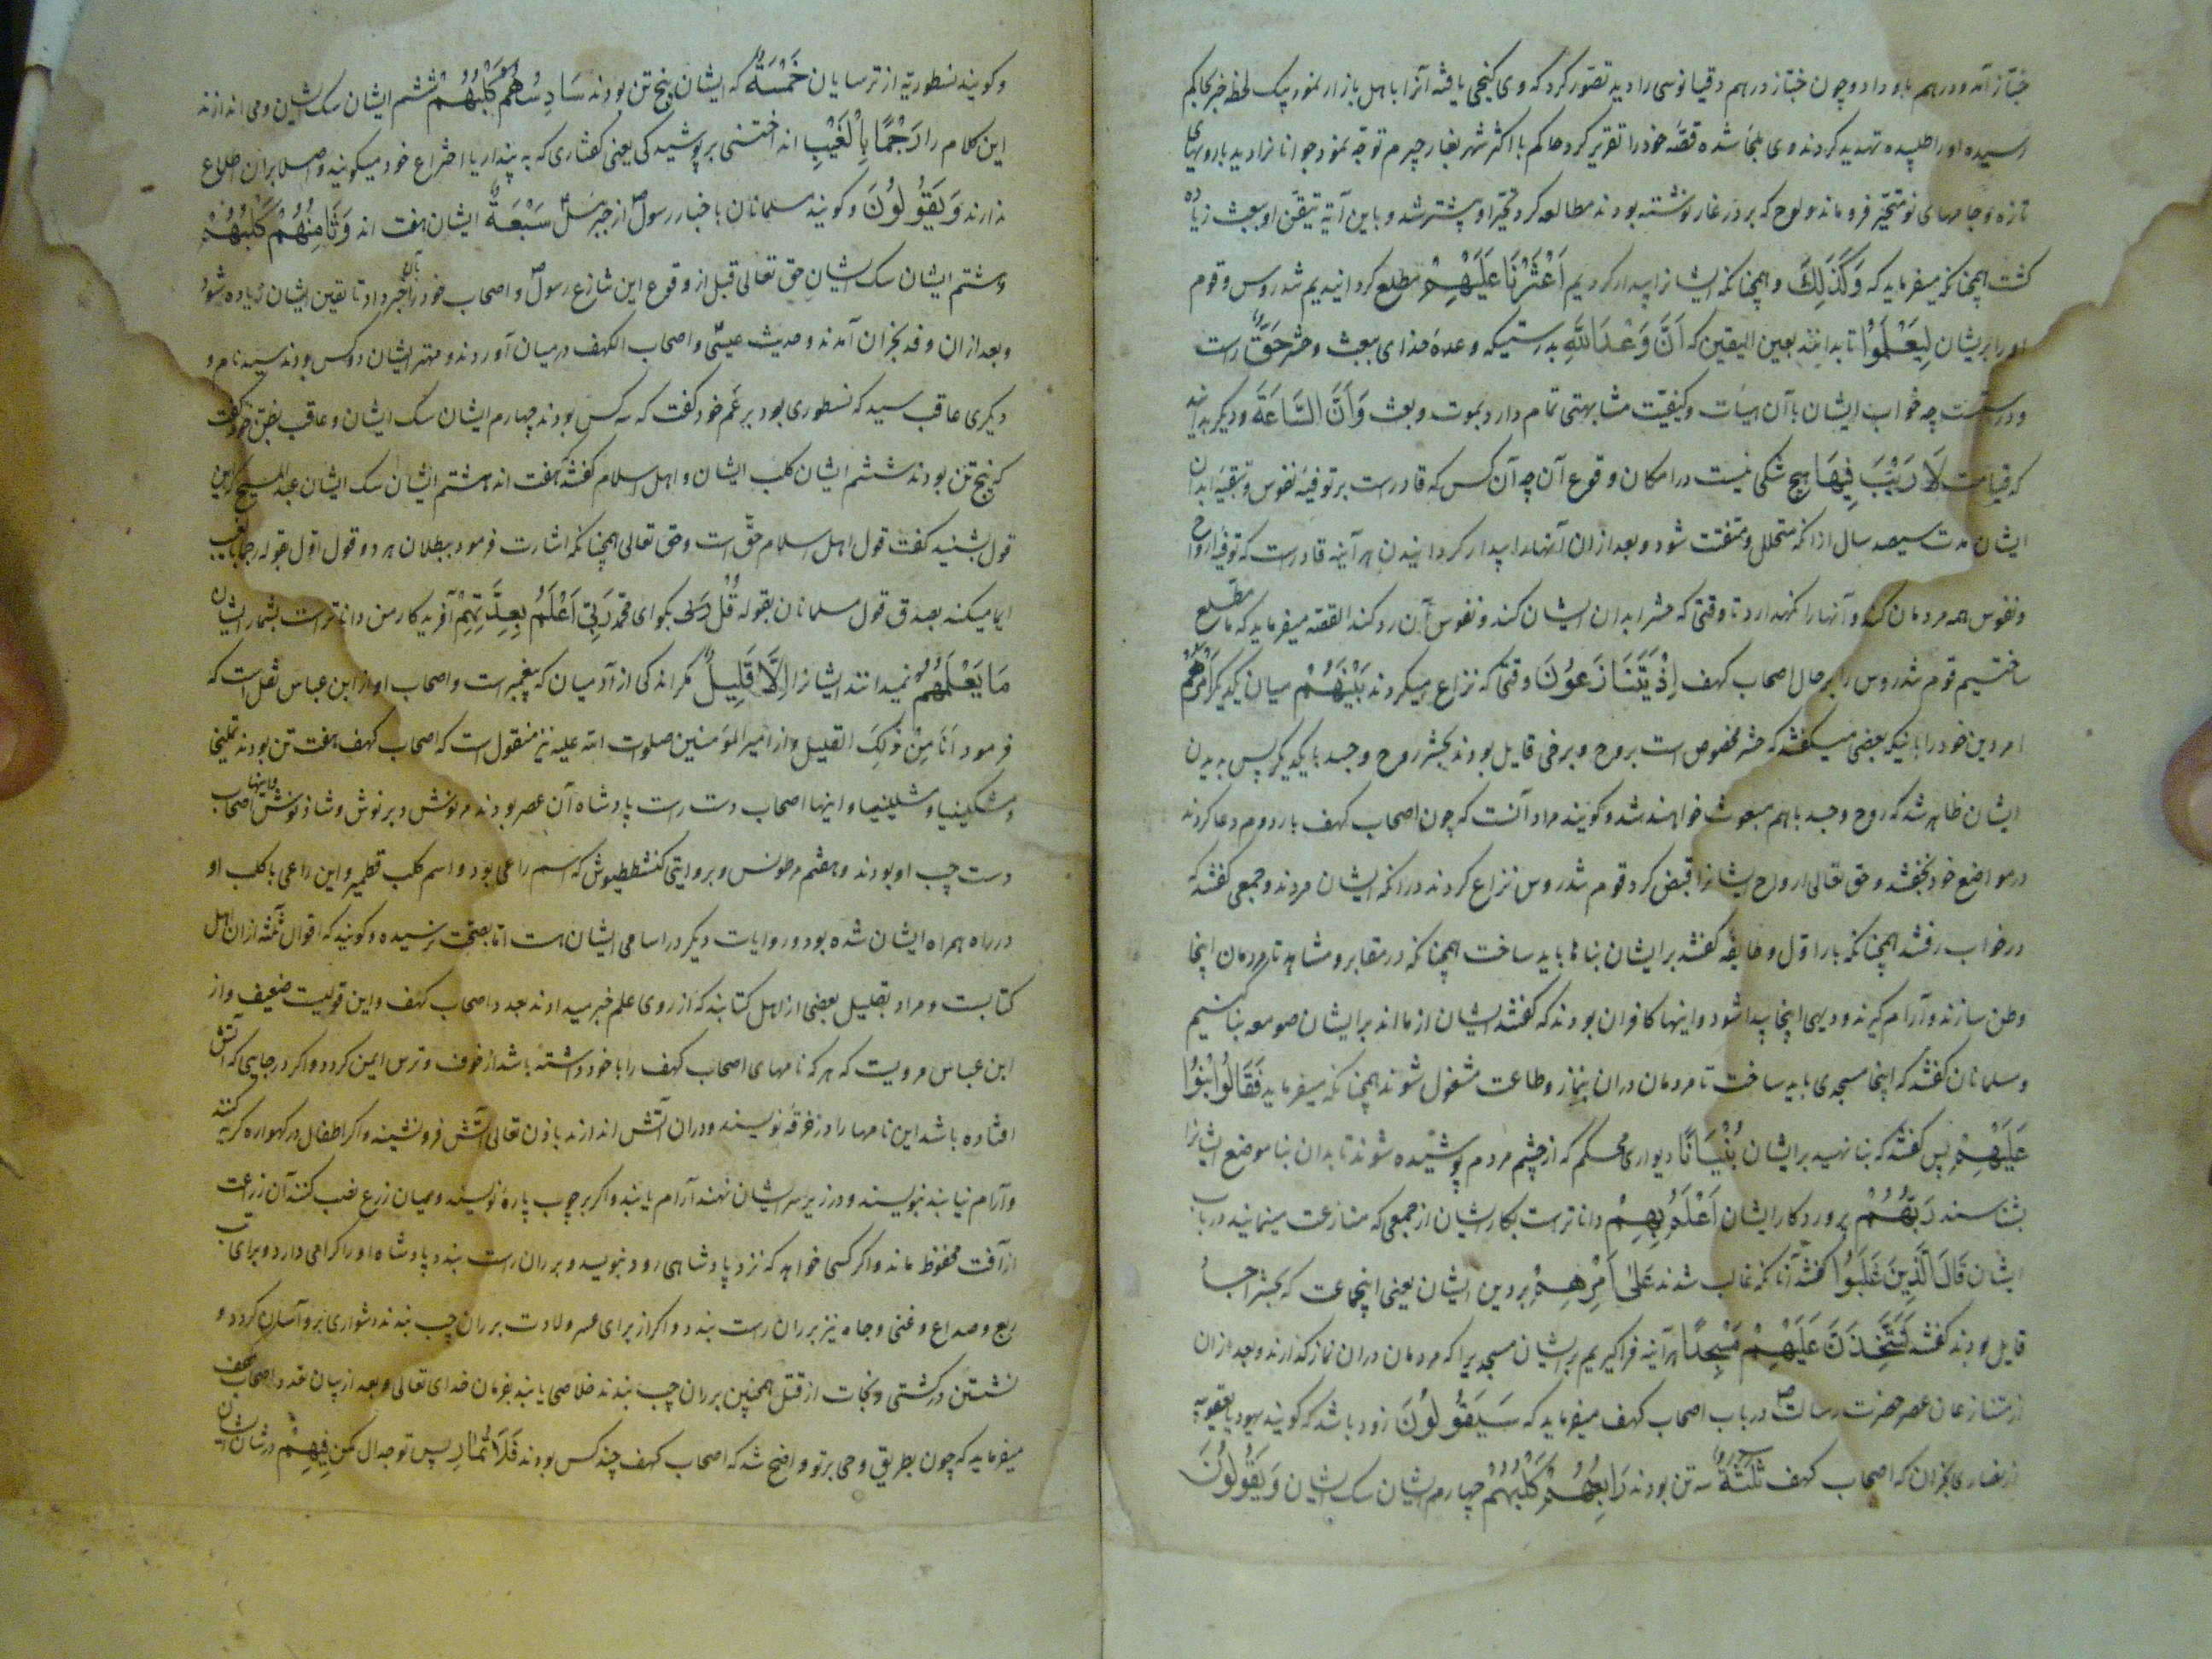 خبّاز آمد و درهم باو داد و چون خبّاز درهم دقیانوسی را دید تصوّر کرد که وی گنجی یافته آنرا باهل بازار نمود بیک لحظه خبر بحاکم
رسیده او را طلبیده تهدید کردند وی ملجأ شده قصّه خود را تقریر کرد حاکم با اکثر شهر بغار جیرم توجّه نمود جوانانرا دید با رویهای
تازه و جامهای نو متحیّر فرو ماند و لوح که بر در غار نوشته بودند مطالعه کرد تحیّر او بیشتر شد و باین آیة تیقّن او ببعث زیاده
کشت همچنانکه میفرماید که وَكَذٰلِكَ و همچنانکه ایشانرا بیدار کردیم اَعْثَرْنَا عَلَيْهِمْ مطلع کردانیدیم تندروس و قوم
او را بر ایشان لِيَعْلَمُوا تا بدانند بعین الیقین که اَنَّ وَعْدَ اللّٰهِ بدرستیکه وعدهٔ خدای ببعث و حشر حَقٌّ راست
و درستست چه خواب ایشان با آن هیأت و کیفیّت مشابهتی تمام دارد بموت و بعث وَاَنَّ السَّاعَةَ و دیکر بدانند
که قیامت لَا رَيْبَ فِيهَا هیچ شکی نیست در امکان و وقوع آن چه آن کس که قادرست بر توفیهٔ نفوس و تبقیهٔ ابدان
ایشان مدت سیصد سال از آنکه متحلل و متفتت شود و بعد از ان آنها را بیدار کردانیدن هر آینه قادرست که توفیهٔ ارواح
و نفوس همه مردمان کند و آنها را نکهدارد تا وقتی که حشر ابدان ایشان کند و نفوس بآن رد کند القصّه میفرماید که ما مطلع
ساختیم قوم تندروس را بر حال اصحاب کهف اِذْ يَتَنَازَعُونَ وقتی که نزاع میکردند بَيْنَهُمْ میان یکدیکر اَمْرَهُمْ
امر دین خود را با نیکه بعضی میکفتند که حشر مخصوص است بروح و برخی قایل بودند بحشر روح و جسد با یکدیکر پس بدیدن
ایشان ظاهر شد که روح و جسد باهم مبعوث خواهند شد و کویند مراد آنست که چون اصحاب کهف بار دوم دعا کردند
در مواضع خود بخفتند و حق تعالی ارواح ایشانرا قبض کرد قوم تندروس نزاع کردند در آنکه ایشان مردند و جمعی کفتند که
در خواب رفتند همچنانکه بار اوّل و طایفه کفتند بر ایشان بناها باید ساخت همچنانکه در مقابر و مشاهد تا مردمان اینجا
وطن سازند و آرام کیرند و دیهی اینجا پیدا شود و اینها کافران بودند که کفتند ایشان از ما اند بر ایشان صومعه بنا کنیم
و مسلمانان کفتند که اینجا مسجدی باید ساخت تا مردمان در ان بنماز و طاعت مشغول شوند همچنانکه میفرماید فَقَالُوا ابْنُوا
عَلَيْهِمْ پس کفتند که بنا نهید بر ایشان بُنْيَانًا دیواری محکم که از چشم مردم پوشیده شوند تا بدان بنا موضع ایشانرا
بشناسند رَبُّهُمْ پروردکار ایشان اَعْلَمُ بِهِمْ داناترست بکار ایشان از جمعی که منازعت مینمایند در باب
ایشان قَالَ الَّذِينَ غَلَبُوا کفتند آنانکه غالب شدند عَلٰى اَمْرِهِمْ بر دین ایشان یعنی اینجماعت که بحشر اجساد
قایل بودند کفتند لَنَتَّخِذَنَّ عَلَيْهِمْ مَسْجِدًا هر آینه فرا کیریم بر ایشان مسجدیرا که مردمان در ان نماز کذارند و بعد از ان
از متنازعان عصر حضرت رسالت ص در باب اصحاب کهف میفرماید که سَيَقُولُونَ زود باشد که کویند یهود یا یعقوبیه
از نصاری نجران که اصحاب کهف ثَلٰثَةٌ سه تن بودند رَابِعُهُمْ كَلْبُهُمْ چهارم ایشان سک ایشان وَيَقُولُونَ
و کویند نسطوریه از ترسایان خَمْسَةٌ که ایشان پنج تن بودند سَادِسُهُمْ كَلْبُهُمْ ششم ایشان سک ایشان و می اندازند
این کلام را رَجْمًا بِالْغَيْبِ انداختنی بر پوشیدکی یعنی کفتاری که به پندار یا اختراع خود میکویند و اصلا بران اطلاع
ندارند وَيَقُولُونَ و کویند مسلمانان باخبار رسول ص از جبرئیل ع سَبْعَةٌ ایشان هفت اند وَثَامِنُهُمْ كَلْبُهُمْ
و هشتم ایشان سک ایشان حق تعالی قبل از وقوع این تنازع رسول ص و اصحاب خود را بآن خبر داد تا یقین ایشان زیاده شود
و بعد از ان وفد نجران آمدند و حدیث عیسی ع و اصحاب الکهف در میان آوردند و مهتر ایشان دو کس بودند سید نام و
دیکری عاقب سید که نسطوری بود بر عم خود کفت که سه کس بودند چهارم ایشان سک ایشان و عاقب بظنّ خود کفت
که پنج تن بودند ششم ایشان کلب ایشان و اهل اسلام کفتند که هفت اند هشتم ایشان سک ایشان عبد المسیح که این
قول بشنید کفت قول اهل اسلام حقّ است و حق تعالی همچنانکه اشارت فرمود ببطلان هر دو قول اوّل بقوله رجما بالغیب
ایما میکند بصدق قول مسلمانان بقوله قُلْ بکو ای محمّد رَبِّي اَعْلَمُ بِعِدَّتِهِمْ آفریدکار من داناترست بشمار ایشان
مَا يَعْلَمُهُمْ نمیدانند ایشانرا اِلَّا قَلِيلٌ مکر اندکی از آدمیان که پیغمبرست و اصحاب او از ابن عباس نقل است که
فرمود اَنَا مِنْ ذٰلِكَ القلیل و از امیر المؤمنین صلوات الله علیه نیز منقول است که اصحاب کهف هفت تن بودند تملیخا
و مشکلینیا و مشلینیا و اینها اصحاب دست راست پادشاه آن عصر بودند مرنوش و دبرنوش و شاذنوش و اینها اصحاب
دست چپ او بودند و هفتم مرطونس و بروایتی کفشططیوش که اسم راعی بود و اسم کلب قطمیر و این راعی با کلب او
در راه همراه ایشان شده بود و روایات دیکر در اسامی ایشان هست امّا بصحّت نرسیده و کویند که اقوال ثلثه از ان اهل
کتابست و مراد بقلیل بعضی از اهل کتابند که از روی علم خبر میدادند بعدد اصحاب کهف و این قولیست ضعیف و از
ابن عباس مرویست که هر که نامهای اصحاب کهف را با خود داشته باشد از خوف و ترس ایمن کردد و اکر در جایی که آتش
افتاده باشد این نامها را در خرقه نویسند و در ان آتش اندازند باذن تعالی آتش فرو نشیند و اکر اطفال در کهواره کریه کنند
و آرام نیابند بنویسند و در زیر سر ایشان نهند آرام یابند و اکر بر چوب پارهٔ نویسند و میان زرع نصب کنند آن زراعت
از آفت محفوظ ماند و اکر کسی خواهد که نزد پادشاهی رود بنویسد و بر ران راست بندد پادشاه او را کرامی دارد و برای تب
ربع و صداع و غنی و جاه نیز بر ران راست بندد و اکر از برای عسر ولادت بر ران چپ بندند دشواری برو آسان کردد و
نشستن در کشتی و نجات از قتل همچنین بر ران چپ بندند خلاصی یابند بفرمان خدای تعالی و بعد از بیان عدد اصحاب کهف
میفرماید که چون بطریق وحی بر تو واضح شد که اصحاب کهف چند کس بودند فَلَا تُمَارِ پس تو جدال مکن فِيهِمْ در شان ایشان